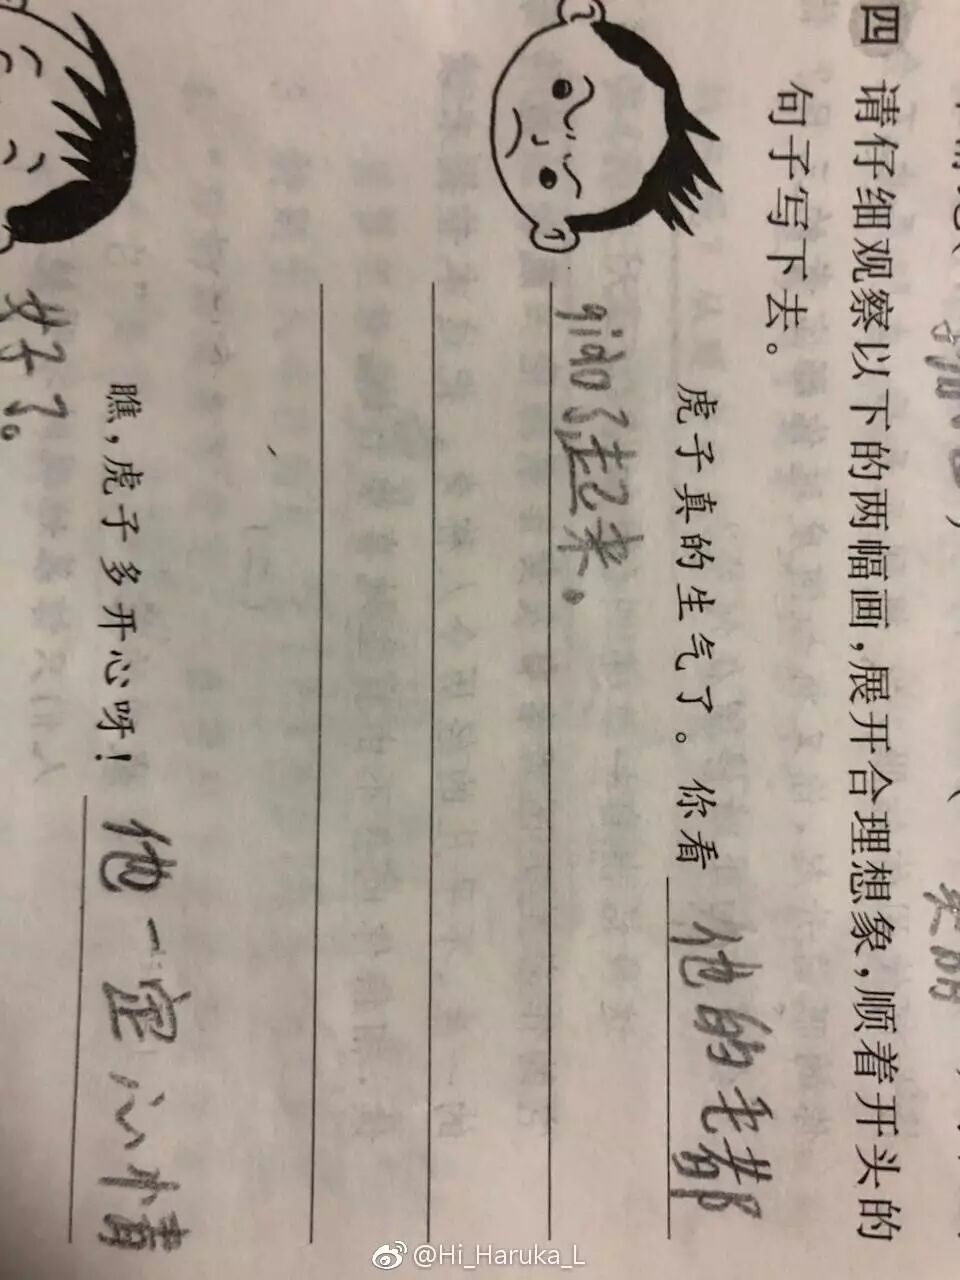 四 请仔细观察以下的两幅画,展开合理想象,顺着开头的
句子写下去。
虎子真的生气了。你看他的毛都
qiào了起来。
瞧,虎子多开心呀!他一定心情
好了。
@Hi_Haruka_L